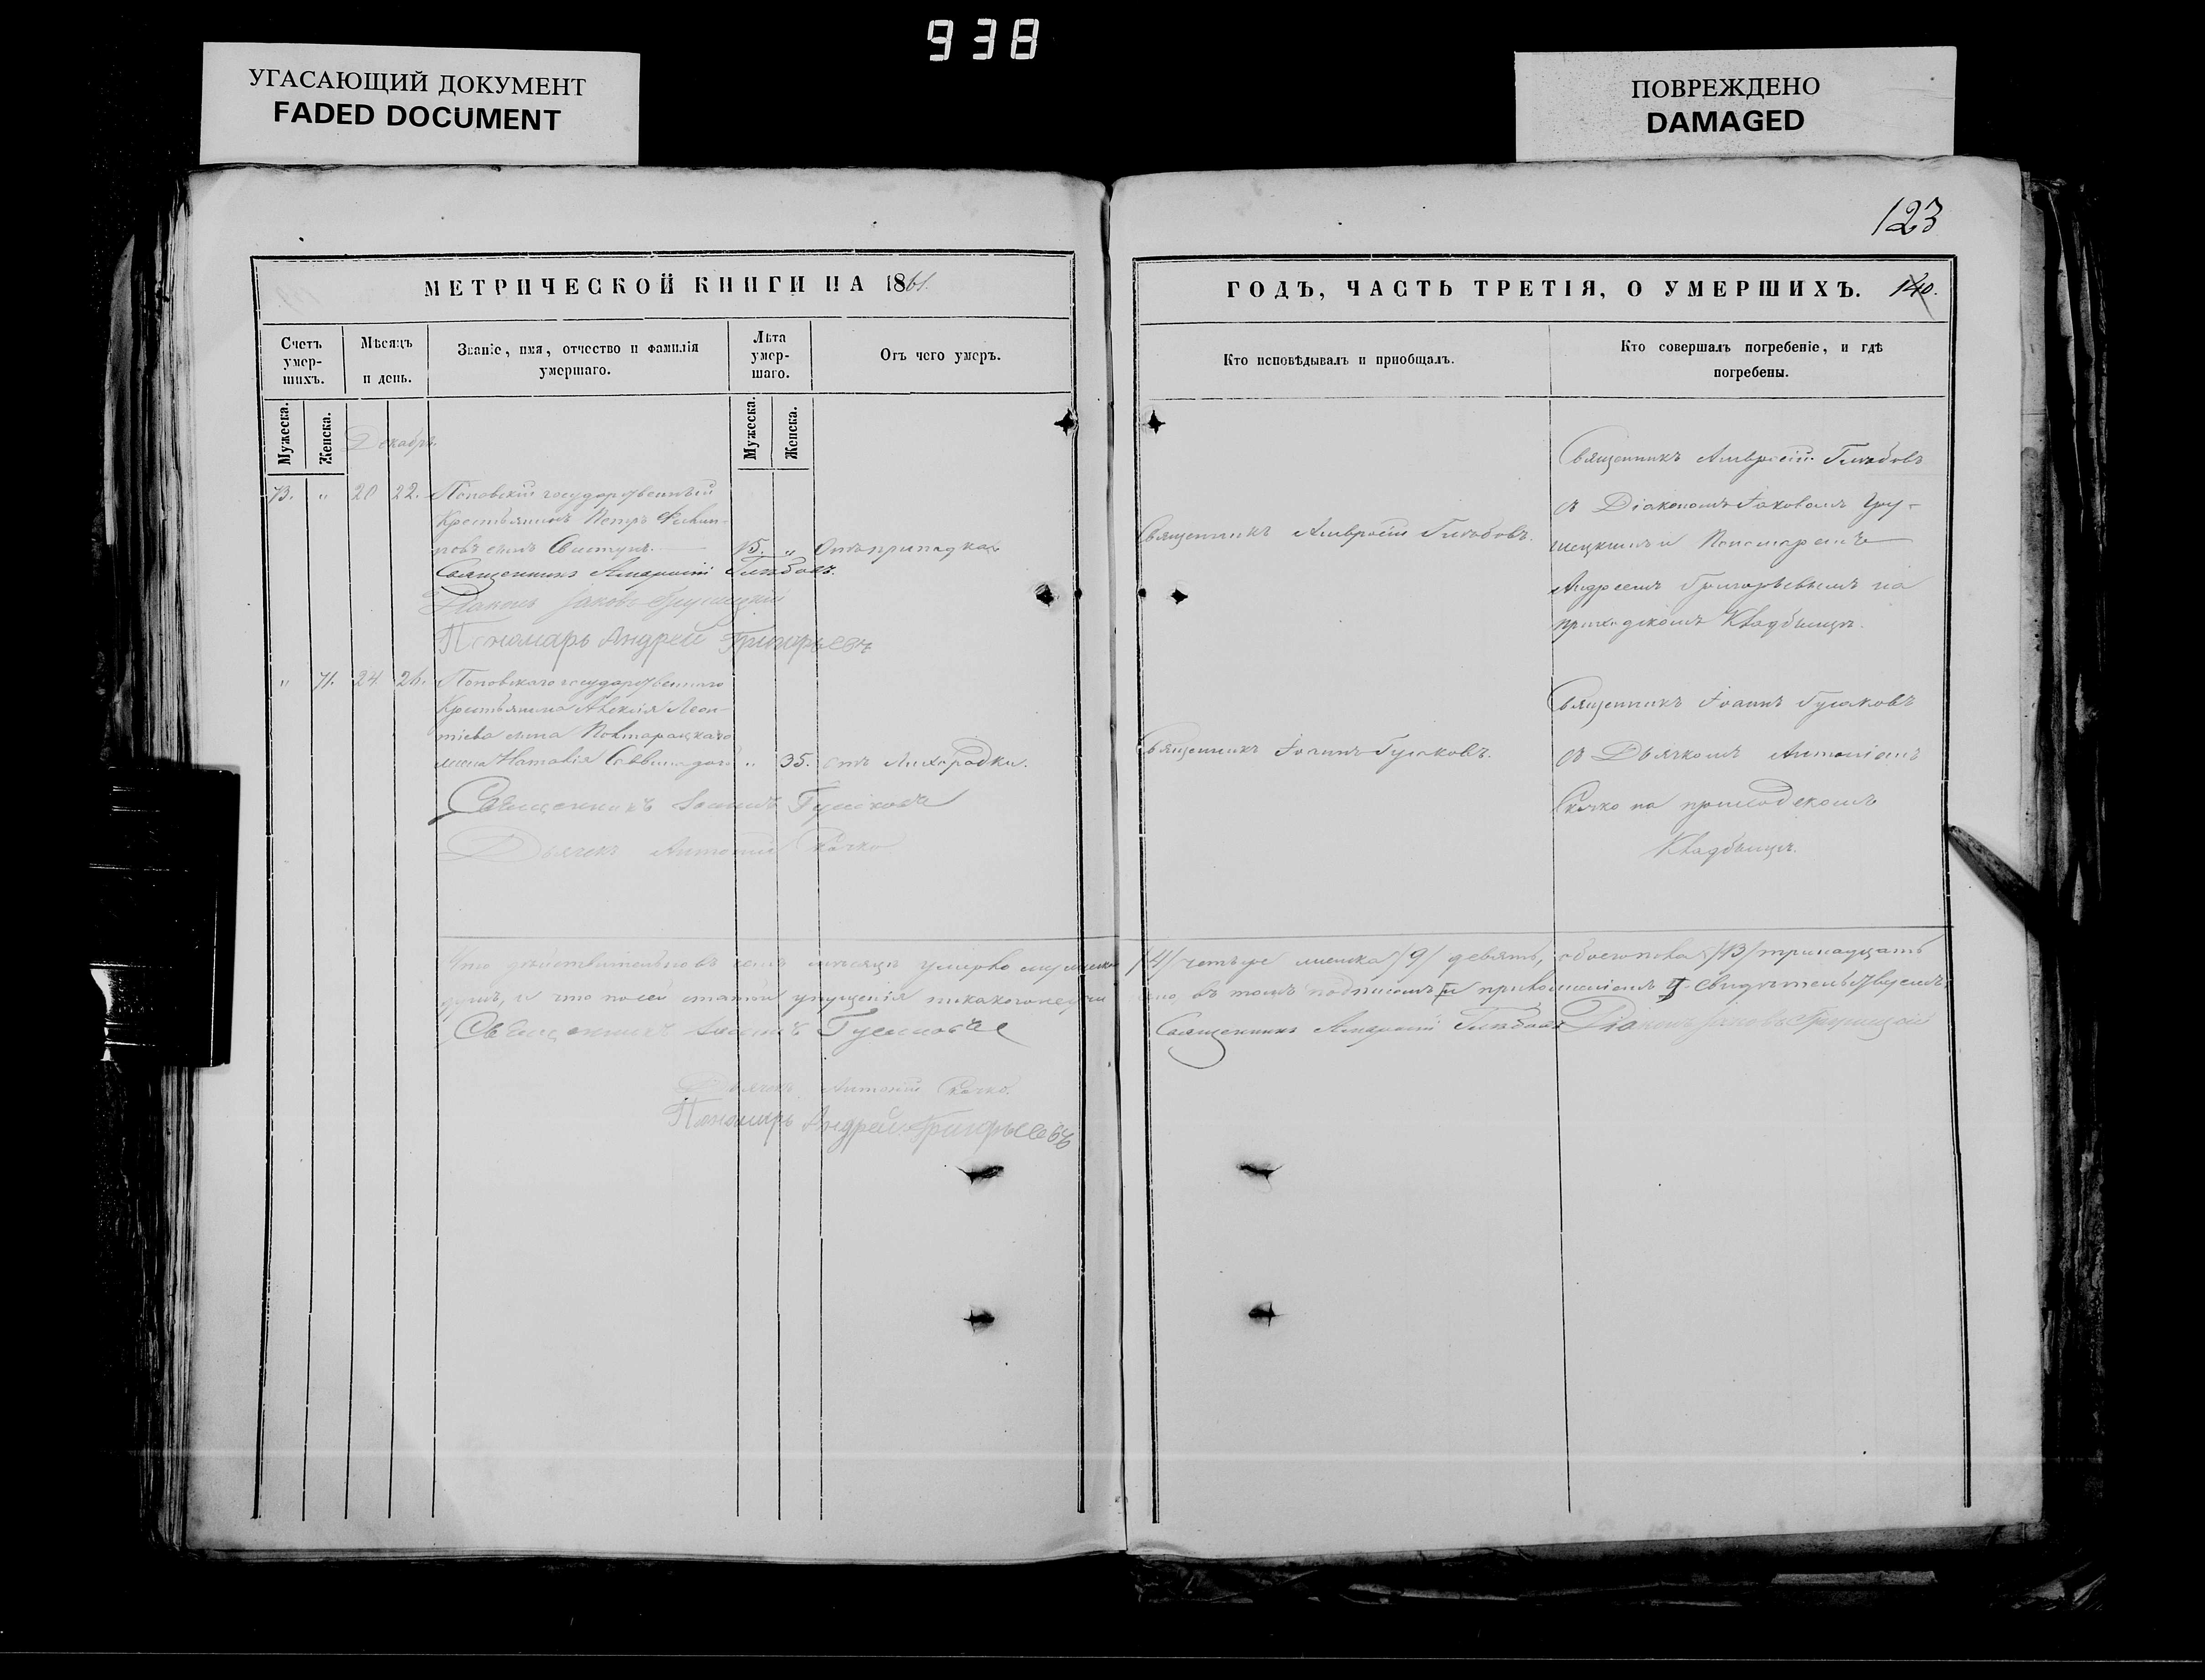 938
УГАСАЮЩИЙ ДОКУМЕНТ
FADED DOCUMENT
ПОВРЕЖДЕНО
DAMAGED
123
МЕТРИЧЕСКОЙ КНИГИ НА 1861.
Счетъ умер-
шихъ.
Мѣсяцъ
и день.
Званіе, имя, отчество и фамилія
умершаго.
Лѣта
умер-
шаго.
Отъ чего умеръ.
Мужеска.
Женска.
Декабрь.
Мужеска.
Женска.
73. " 20 22. Поповскій государственный
Крестьянинъ Петръ Филип-
повъ сынъ Свистунъ. 15. " Отъ припадка
Священникъ Амвросій Глѣбовъ.
Діаконъ Іаковъ Грушецкій
Пономарь Андрей Григорьевъ
" 71. 24. 26. Поповскаго государственнаго
Крестьянина Алексія Леон-
тіева сына
жена Наталія " 35. отъ Лихорадки.
Священникъ Іоаннъ Гусаковъ
Дьячекъ Антоній Скачко
Что дѣйствительно въ семъ мѣсяцѣ умерло мужеска
душъ, и что по сей статьи упущенія никакого
Священникъ Іоаннъ Гусаковъ
Дьячекъ Антоній Скачко.
Пономарь Андрей Григорьевъ
ГОДЪ, ЧАСТЬ ТРЕТІЯ, О УМЕРШИХЪ. 140.
Кто исповѣдывалъ и пріобщалъ.
Кто совершалъ погребеніе, и гдѣ
погребены.
Священникъ Амвросій Глѣбовъ.
Священникъ Амвросій Глѣбовъ
съ Діакономъ Іаковомъ Гру-
шецкимъ и Пономаремъ
Андреемъ Григорьевымъ на
приходскомъ Кладбищѣ.
Священникъ Іоаннъ Гусаковъ.
Священникъ Іоаннъ Гусаковъ
съ Дьячкомъ Антоніемъ
Скачко на приходскомъ
Кладбищѣ.
/4/ четыре женска /9/ девять, обоего пола /13/ тринадцать
въ томъ подписомъ и приложеніемъ свидѣтельствуемъ.
Священникъ Амвросій Глѣбовъ Діаконъ Іаковъ Грушецкій